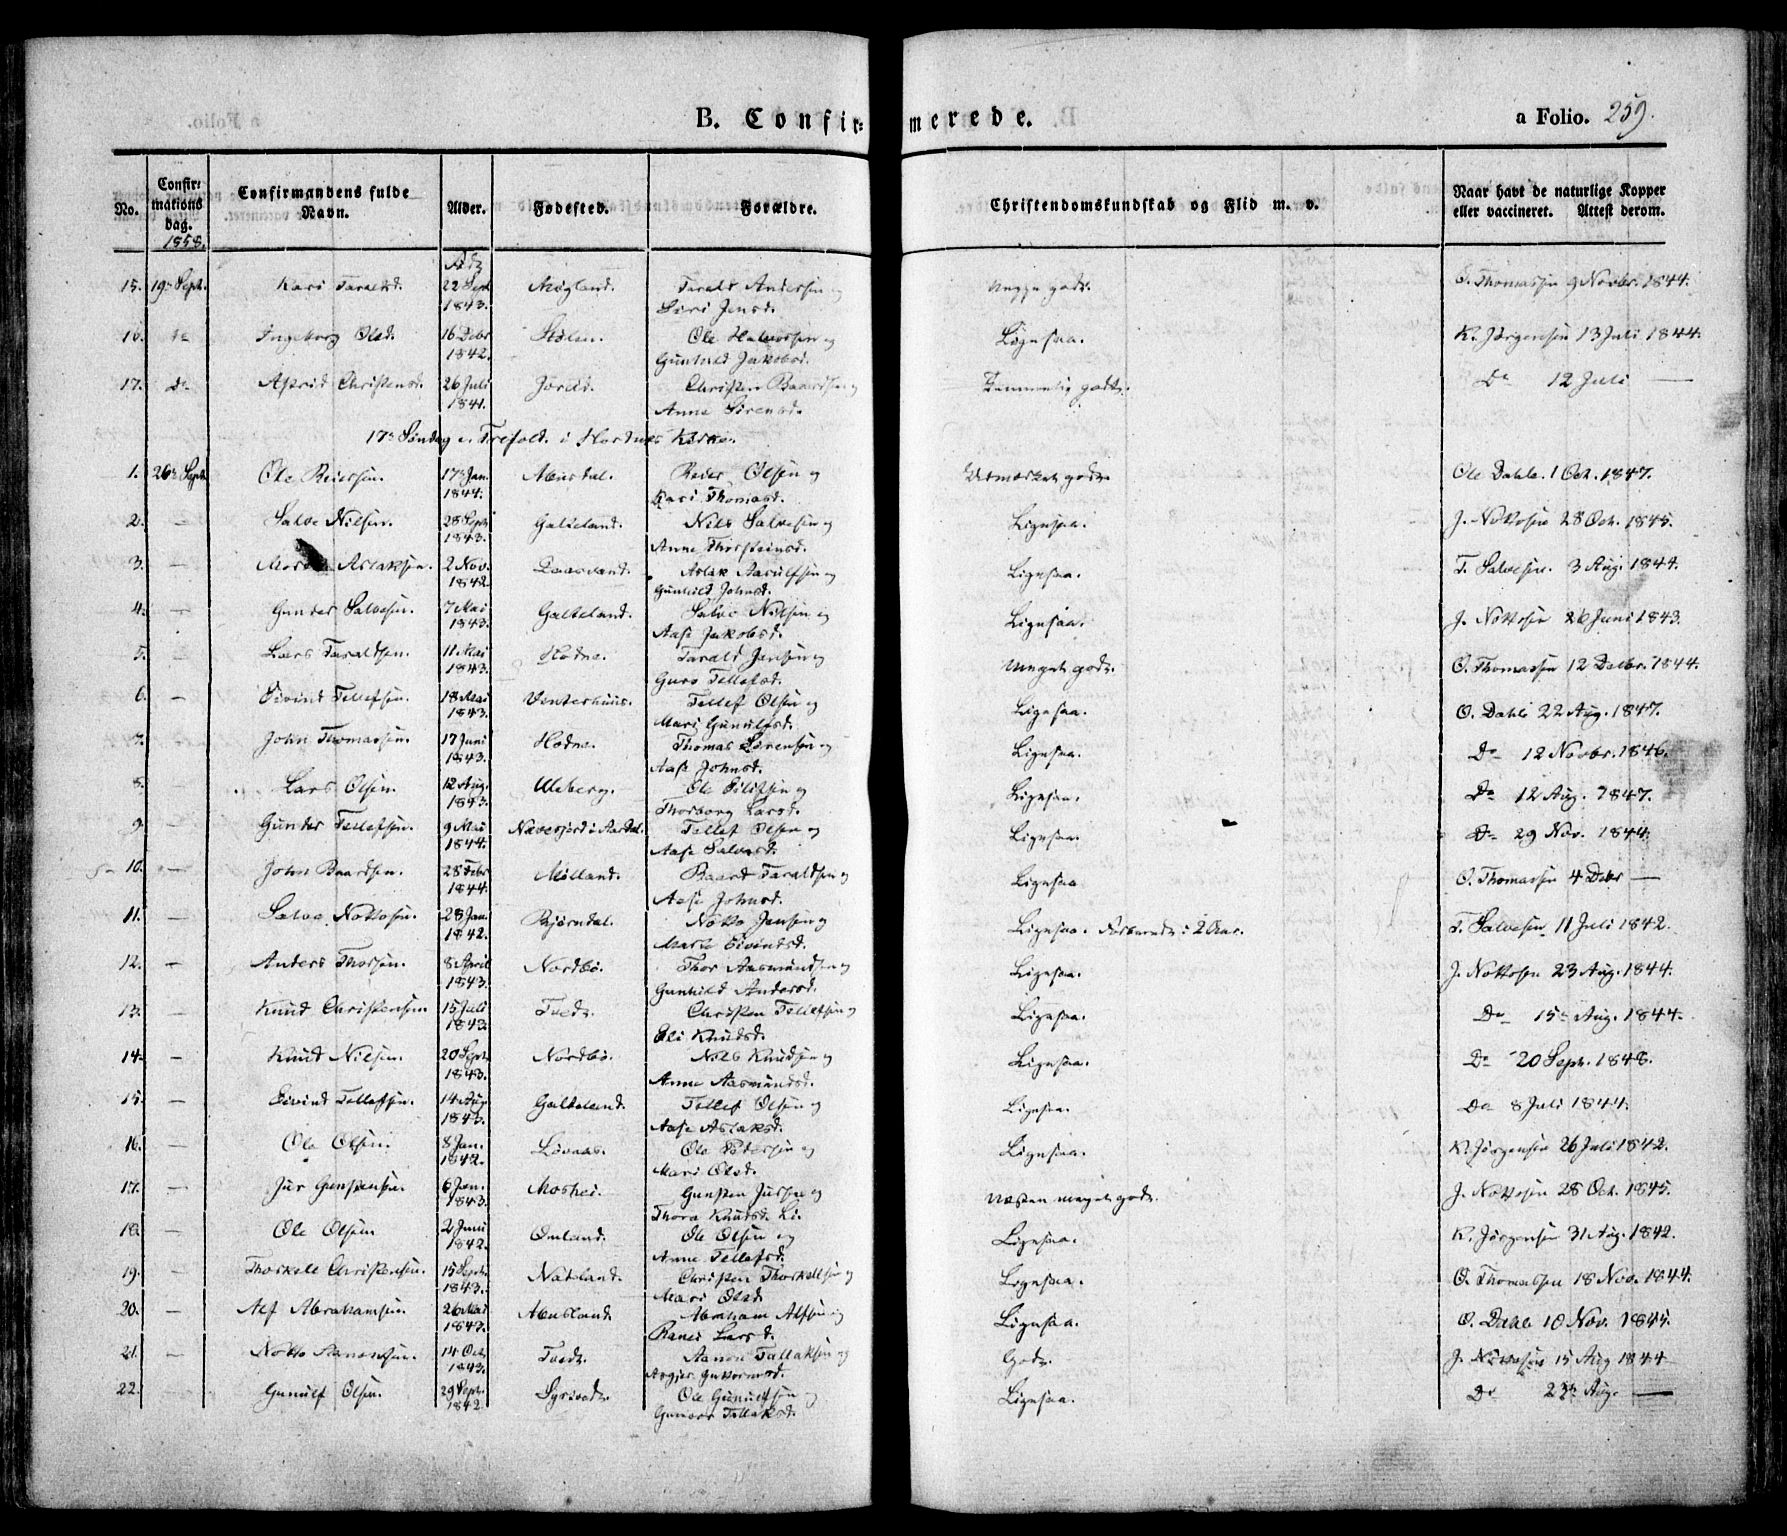 B. Confirmerede.
a Folio. 259.
No. Confirmations dag. 1858. Confirmandens fulde Navn. Alder. Fødested. Forældre. Christendomskundskab og Flid m. v. Naar havt de naturlige Kopper eller vaccineret. Attest derom.
15. 19 Sept. Kari Taraldsd. 22 Sept 1843. Møgland. Tarald Andersen og Siri Jensd. Meget godt. O. Thomassen 9 Novbr. 1844.
16. Ingeborg Olsd. 16 Debr 1842. Stølen. Ole Halvorsen og Gunhild Jakobsd. Ligesaa. K. Jørgensen 13 Juli 1844.
17. Do Astrid Christensd. 26 Juli 1841. Christen Baardsen og Anne Sørensd. Temmelig godt. Do 12 Juli —
17de Søndag e. Trefold. i Hordnes Kirke.
1. 26 Sept. Ole Reiersen. 17 Jan. 1844. Reier Olsen og Kari Thomasd. Udmærket godt. Ole Dahle. 1 Oct. 1847.
2. — Salve Nilsen. 28 Sept 1843. Galteland. Nils Salvesen og Anne Thorsteinsd. Ligesaa. J. Nottosen 28 Oct. 1845.
3. — Aslaksen. 2 Nov. 1842. Aslak Aasulfsen og Gunhild Johnsd. Ligesaa. T. Salvesen. 3 Aug. 1844.
4. — Gunder Salvesen. 7 Mai 1843. Galteland. Salve Nilsen og Aase Jakobsd. Ligesaa. J. Nottosen 26 Juni 1843.
5. — Lars Taraldsen. 11 Mai 1843. Hodne. Tarald Jensen og Guro Tellefsd. Meget godt. O. Thomassen 12 Decbr. 1844.
6. — Eivind Tellefsen. 18 Mai 1843. Venterhuus. Tellef Olsen og Mari Gunulfsd. Ligesaa. O. Dahle 22 Aug. 1847.
7. — John Thomassen. 17 Juni 1843. Hodne. Thomas Sørensen og Aase Johnsd. Ligesaa. Do 12 Novbr. 1846.
8. — Lars Olsen. 12 Aug. 1843. Uleberg. Ole Eilifsen og Thorborg Larsd. Ligesaa. Do 12 Aug. 1847.
9. — Gunder Tellefsen. 9 Mai 1844. Tellef Olsen og Aase Salvesd. Ligesaa. Do 29 Nov. 1844.
10. — John Baardsen. 28 Febr 1844. Mølland. Baard Taraldsen og Aase Johnsd. Ligesaa O. Thomassen 4 Debr —
11. — Salve Nottosen. 28 Jan. 1842. Bjørndal. Notto Jensen og Eivindsd. Ligesaa. i 2 Aar. T. Salvesen 11 Juli 1842.
12. — Anders Thorsen. 8 April 1843. Nordbø. Thor Aasmundsen og Gunhild Andersd. Ligesaa. J. Nottosen 23 Aug. 1844.
13. — Knud Christensen 15 Juli 1843. Tvedt. Christen Tellefsen og Eli Knudsd. Ligesaa. Do 15de Aug. 1844.
14. — Knud Nilsen. 20 Sept. 1843. Nordbø. Nils Knudsen og Anne Aasmundsd. Ligesaa. Do 20 Sept. 1848.
15. — Eivind Tellefsen. 14 Aug 1843. Galteland. Tellef Olsen og Aase Aslaksd. Ligesaa. Do 8 Juli 1844.
16. — Ole Olsen. 8 Jan. 1842. Løvaas. Ole Pedersen og Mari Olsd. Ligesaa. K. Jørgensen 26 Juli 1842.
17. — Jur Gunstensen. 6 Jan. 1843. Moshei. Gunsten Jursen og Thora Knudsd. Li. Næsten meget godt. J. Nottosen 28 Oct. 1845.
18. — Ole Olsen 2 Juni 1842. Omland. Ole Olsen og Anne Tellefsd. Ligesaa. K. Jørgensen 31 Aug. 1842.
19. — Thorkell Christensen. 15 Sept. 1843. Nateland. Christen Thorkellsen og Mari Olsd. Ligesaa. O. Thomassen 18 Nov. 1844.
20. — Alf Abrahamsen. 26 Mai 1843. Abusland. Abraham Alfsen og Ranei Larsd. Ligesaa. O. Dahle 10 Nov. 1845.
21. — Notto Aanonsen. 14 Oct. 1843. Tvedt. Aanon Tallaksen og Asgjer Guttormsd. Godt. J. Nottosen 15 Aug 1844
22. — Gunulf Olsen. 29 Sept. 1842. Syrtvedt. Ole Gunulfsen og Gunvor Tallaksd. Ligesaa. Do Aug. —